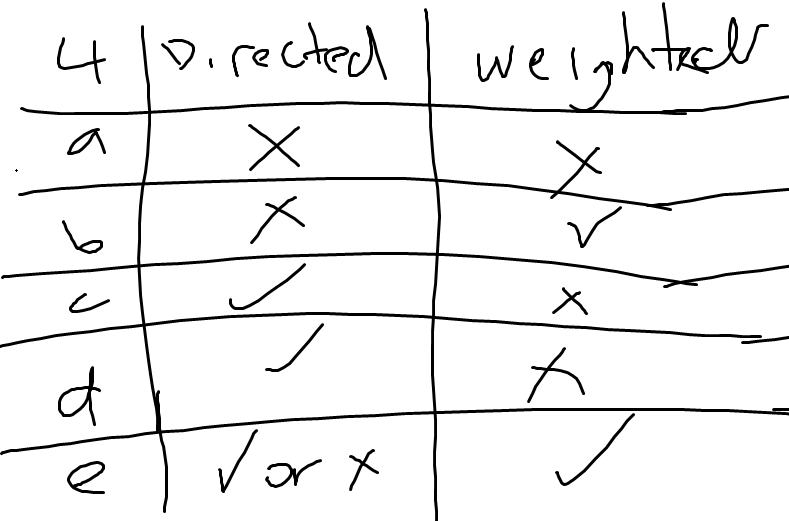 4 Directed weighted
a X X
b X ✓
c ✓ X
d ✓ X
e ✓ or X ✓